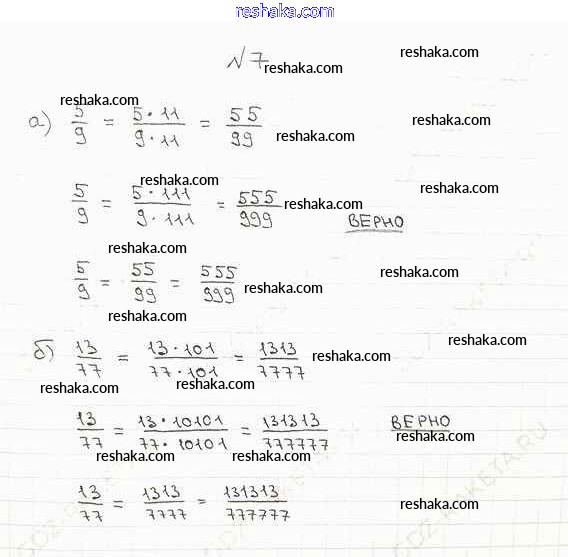 reshaka.com
№ 7 reshaka.com
reshaka.com
reshaka.com
reshaka.com
а) 5/9 = 5·11/9·11 = 55/99 reshaka.com
reshaka.com
reshaka.com
5/9 = 5·111/9·111 = 555/999 reshaka.com
ВЕРНО
reshaka.com
reshaka.com
5/9 = 55/99 = 555/999 reshaka.com
reshaka.com
reshaka.com
б) 13/77 = 13·101/77·101 = 1313/7777 reshaka.com
reshaka.com
reshaka.com
13/77 = 13·10101/77·10101 = 131313/777777 ВЕРНО
reshaka.com
reshaka.com
reshaka.com
13/77 = 1313/7777 = 131313/777777 reshaka.com
GDZ-RAKETA.RU